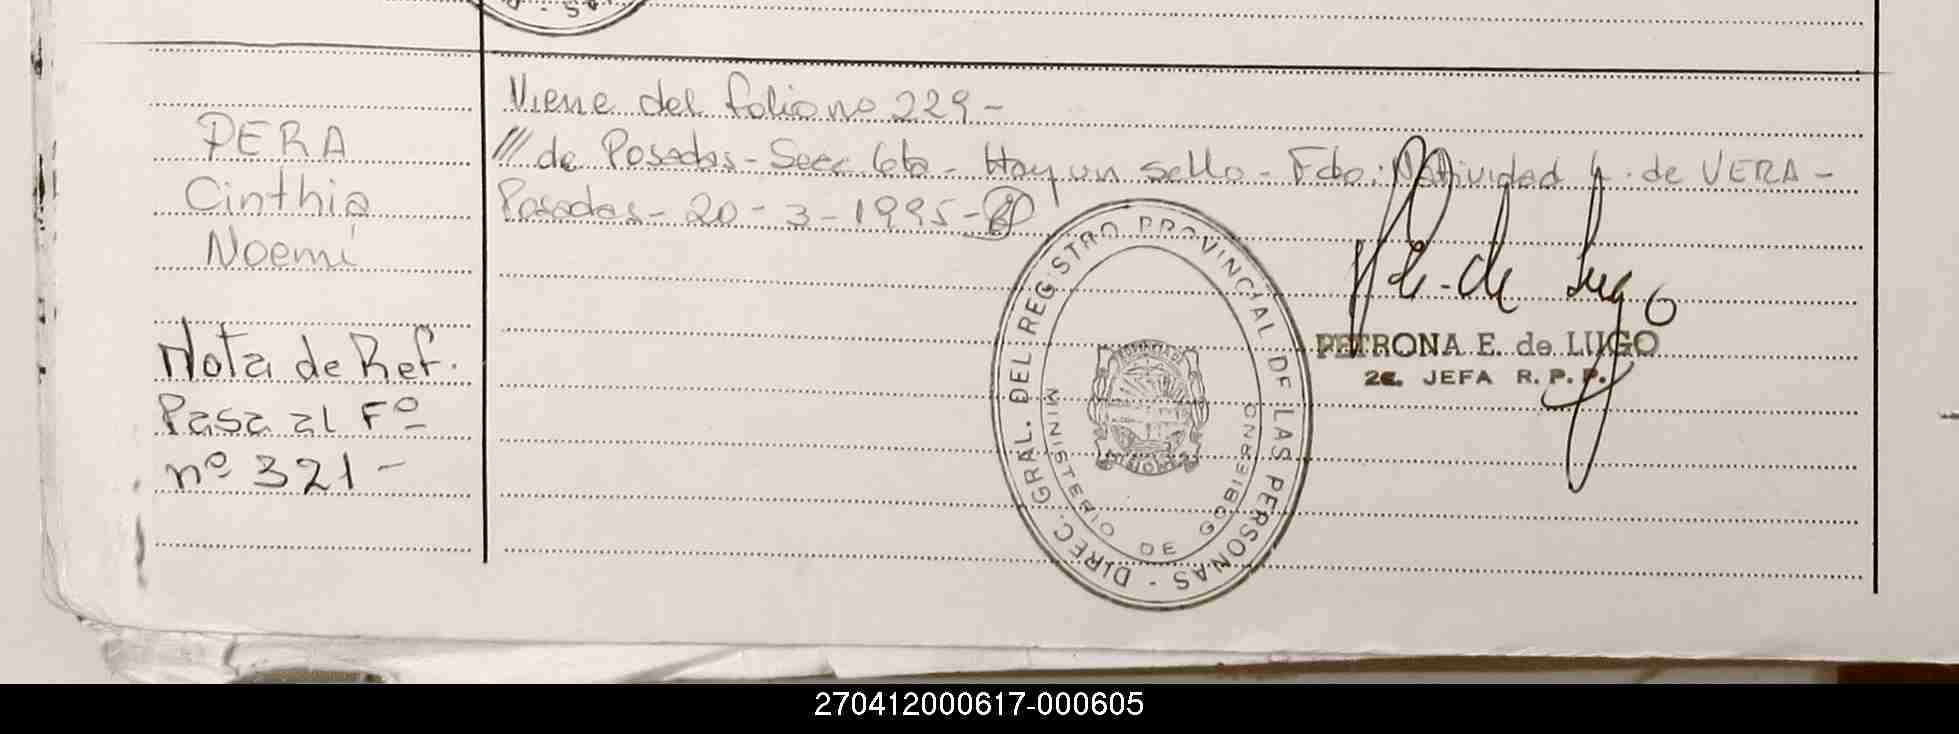 PERA
Cinthia
Noemí
Nota de Ref.
Pasa al Fº
nº 321-
Viene del folio nº 229-
/// de Posadas- Secc 6ta- Hay un sello- Fdo: Natividad G. de VERA-
Posadas- 20-3-1995-
DIREC. GRAL. DEL REGISTRO PROVINCIAL DE LAS PERSONAS -
MINISTERIO DE GOBIERNO
MISIONES
P.E. de Lugo
PETRONA E. de LUGO
2a. JEFA R. P. P.
270412000617-000605